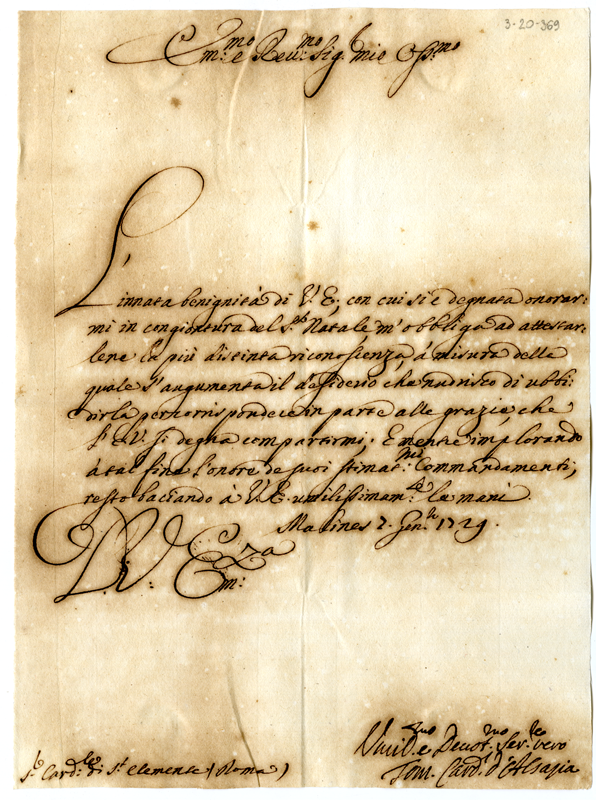 3-20-369
Em:mo e Reu:mo Sig.r mio Oss:mo
L'innata benignità di V. E., con cui si è degnata onorar:
mi in congiontura del S.to Natale, m'obbliga ad attestar:
lene la più distinta riconoscienza, à misura della
quale s'augumenta il desiderio che nudrisco di ubbi:
dirla per corrispondere in parte alle grazie, che
l'E. V. si degna compartirmi. E mentre implorando
à tal fine l'onore de suoi stimat:mi Commandamenti,
resto baciando à V. E. umilissimam:te le mani.
Malines 7. Gen:ro 1729.
D. V. Em:za
Umil:mo e Deuot:mo Ser:re vero
Tom. Card.l d'Alsazia
S.r Card:le di S.t Clemente (Roma)